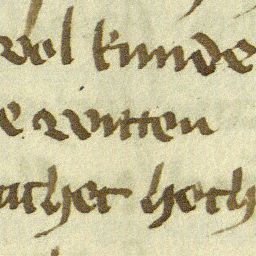 wol kunde
e witten
achet hech